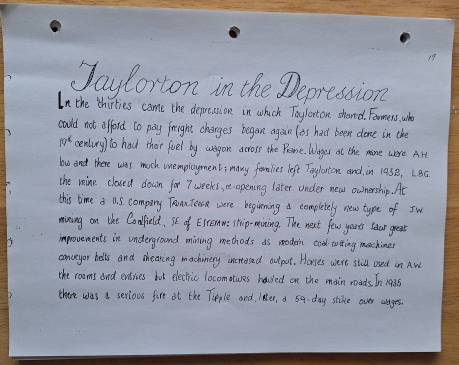 17
Taylorton in the Depression
In the thirties came the depression in which Taylorton shared. Farmers, who
could not afford to pay freight charges began again (as had been done in the
19th century) to haul their fuel by wagon across the Prairie. Wages at the mine were A.H.
low and there was much unemployment; many families left Taylorton and, in 1932, L.B.G.
the mine closed down for 7 weeks, re-opening later under new ownership. At
this time a U.S. company were beginning a completely new type of J.W.
mining on the Coalfield, SE of ESTEVAN: strip-mining. The next few years saw great
improvements in underground mining methods as modern coal-cutting machines
conveyor belts and shearing machinery increased output. Horses were still used in A.W.
the rooms and entries but electric locomotives hauled on the main roads. In 1935
there was a serious fire at the Tipple and, later, a 59-day strike over wages.